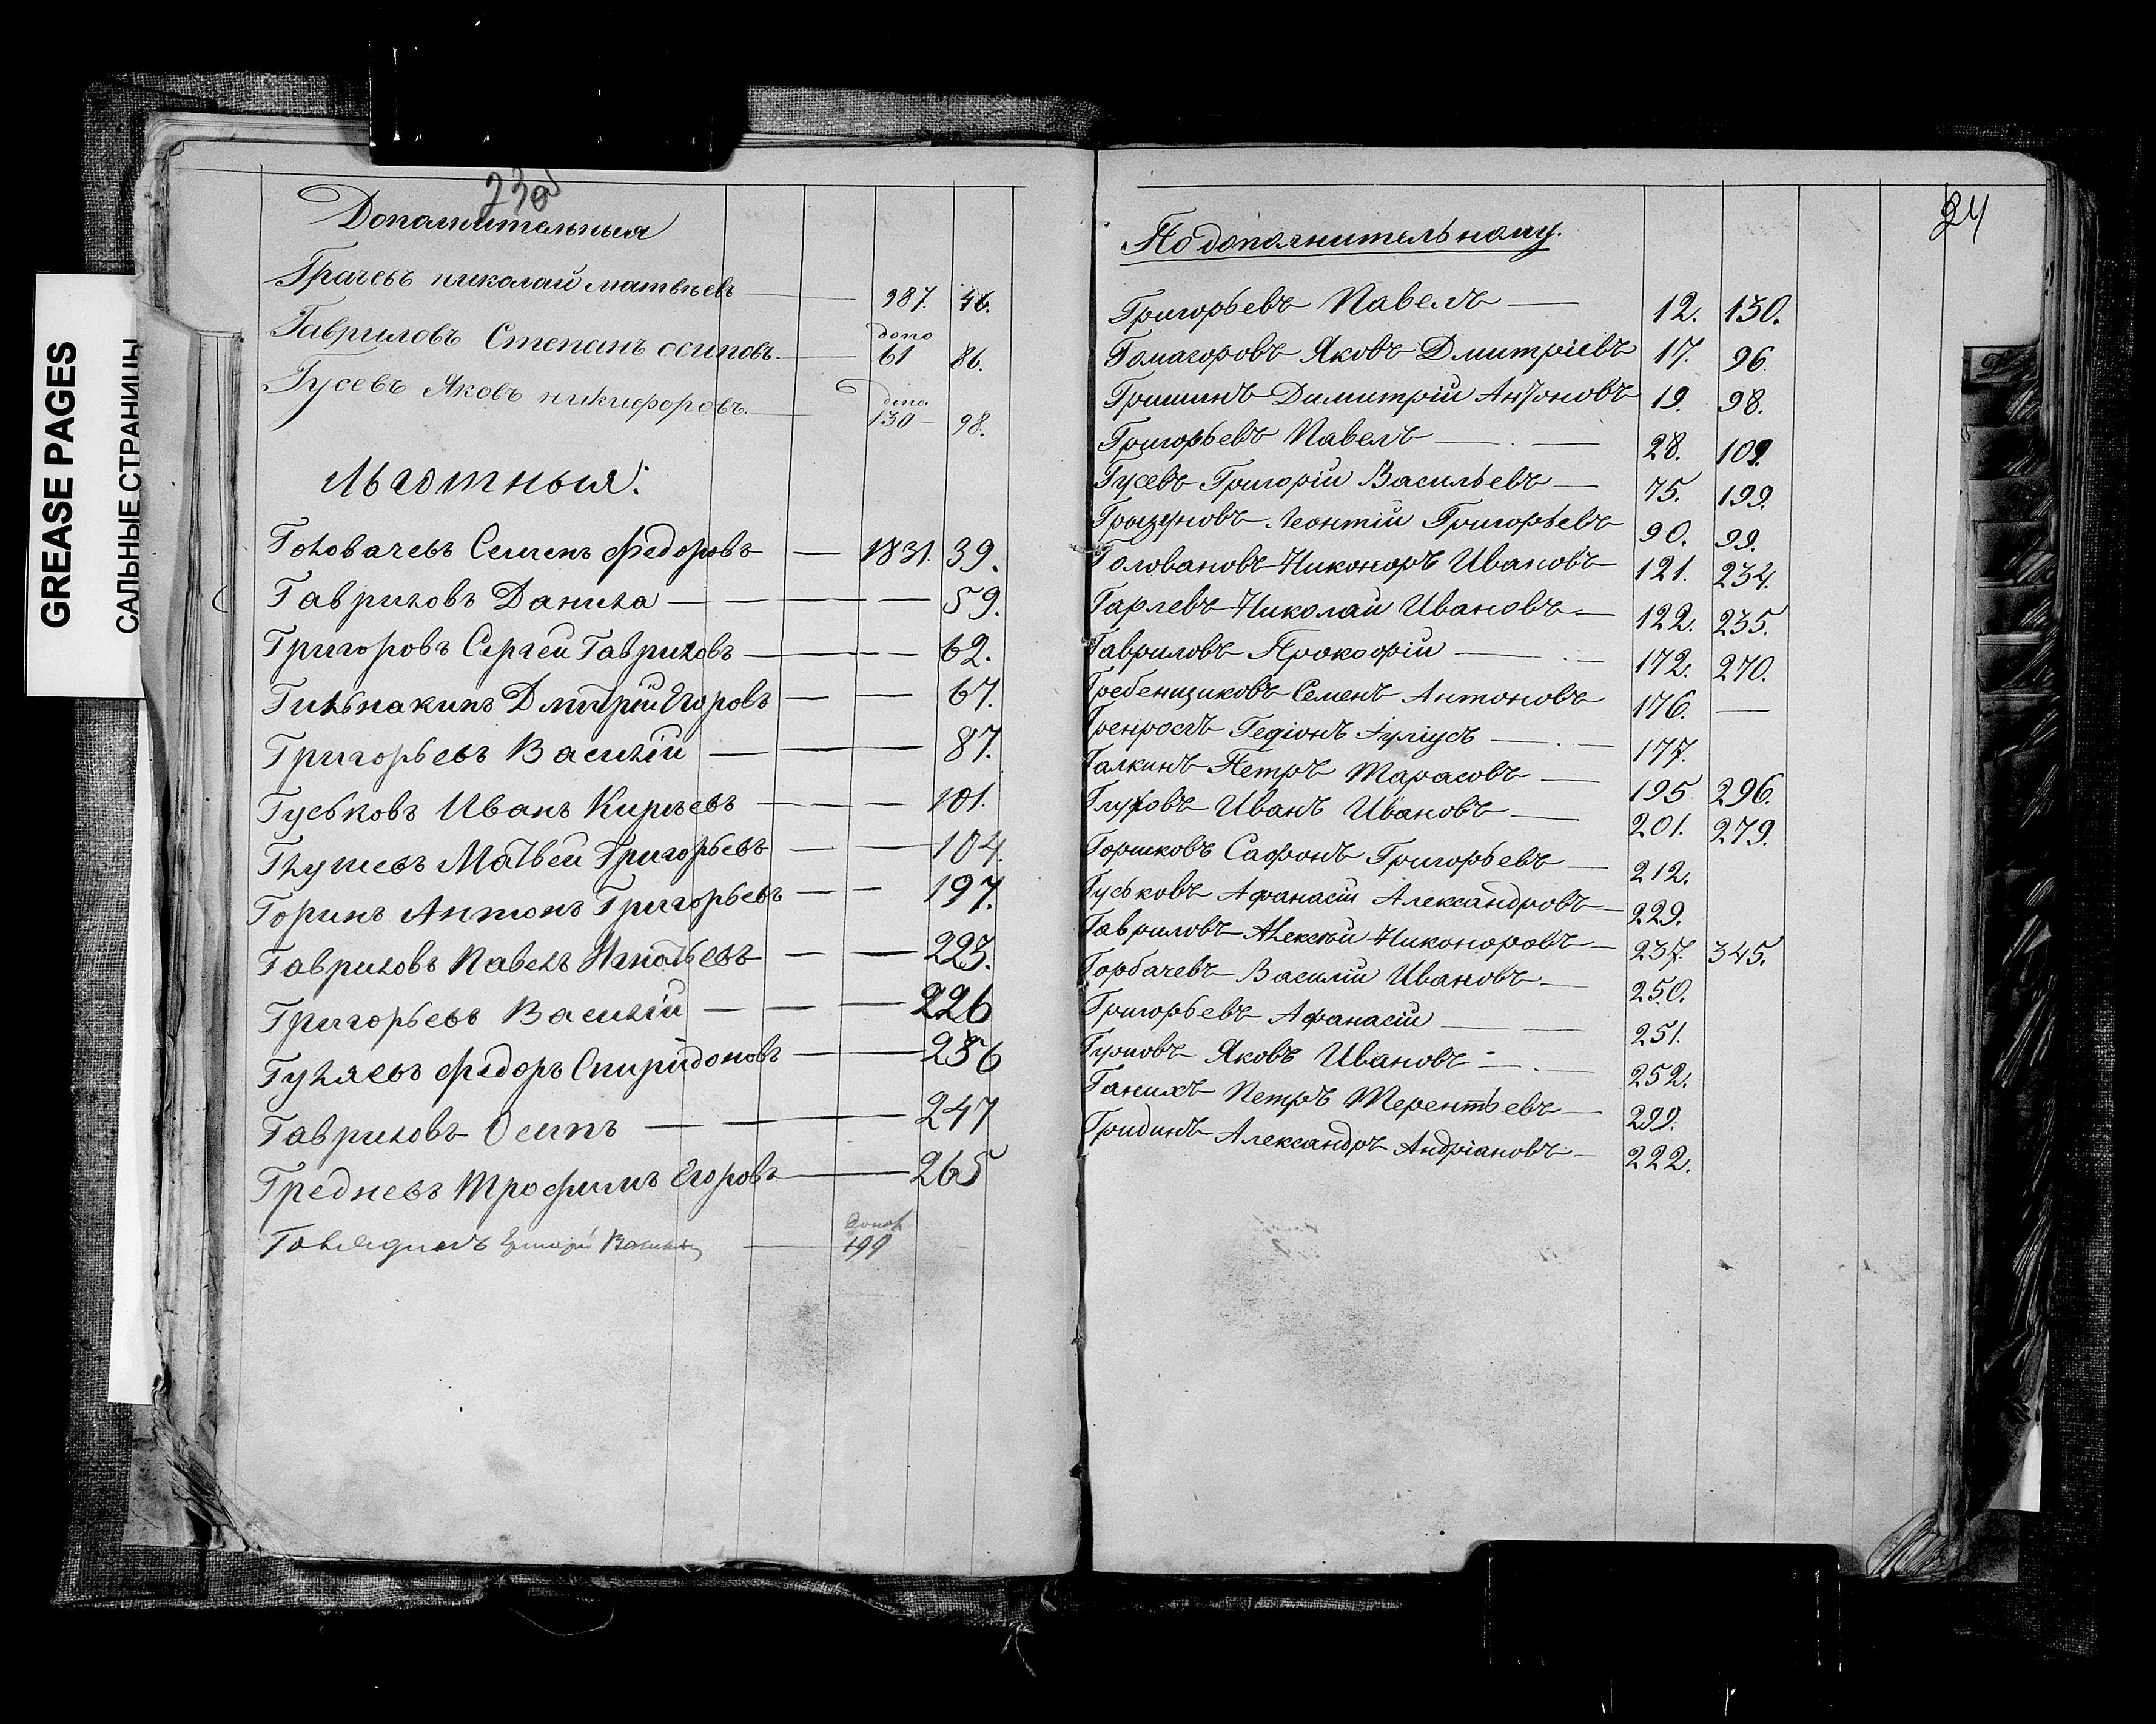 GREASE PAGES
САЛЬНЫЕ СТРАНИЦЫ
23об
Дополнительныя
Грачевъ николай матвѣевъ — 987. 46.
Гавриловъ Степанъ осиповъ. — допо 61 86.
Гусевъ Яковъ никифоровъ. — допо. 130 — 98.
Льготныя:
Головачевъ Семенъ Федоровъ — 1831. 39.
Гавриловъ Данила — — — — 59.
Григоровъ Сергей Гавриловъ — — — 62.
Дмитрій Егоровъ — — 67.
Григорьевъ Василій — — — 87.
Гуськовъ Иванъ Кирѣевъ — — — 101.
Матвей Григорьевъ — — 104.
Горинъ Антонъ Григорьевъ — — 197.
Гавриловъ Павелъ Игнатьевъ — — 223.
Григорьевъ Василій — — — 226
Гуляевъ Федоръ Спиридоновъ — — 236
Гавриловъ Осипъ — — — 247
Гредневъ Трофимъ Егоровъ — — 265
Григорій — допол 199
24
По дополнительному.
Григорьевъ Павелъ — 12. 130.
Гомагоровъ Яковъ Дмитріевъ 17. 96.
Гришинъ Димитрій Антоновъ 19. 98.
Григорьевъ Павелъ — . — 28. 109.
Гусевъ Григорій Васильевъ — 75. 199.
Грызуновъ Леонтій Григорьевъ 90. 99.
Головановъ Никоноръ Ивановъ 121. 234.
Гарлевъ Николай Ивановъ — 122. 235.
Гавриловъ Прокофій — . — 172. 270.
Гребенщиковъ Семенъ Антоновъ 176. —
Гедіонъ — . — 177.
Галкинъ Петръ Тарасовъ — 195 296.
Глуховъ Иванъ Ивановъ — 201. 279.
Горшковъ Сафонъ Григорьевъ — 212.
Гуськовъ Афанасій Александровъ — 229.
Гавриловъ Алексѣй Никоноровъ — 237. 345.
Горбачевъ Василій Ивановъ — 250.
Григорьевъ Афанасій — — 251.
Яковъ Ивановъ — . — 252.
Ганихъ Петръ Терентьевъ — 299.
Гридинъ Александръ Андріановъ — 222.